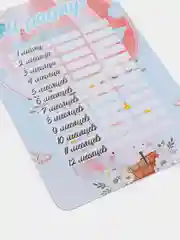 1 месяц
2 месяца
3 месяца
4 месяца
5 месяцев
6 месяцев
7 месяцев
8 месяцев
9 месяцев
10 месяцев
11 месяцев
12 месяцев